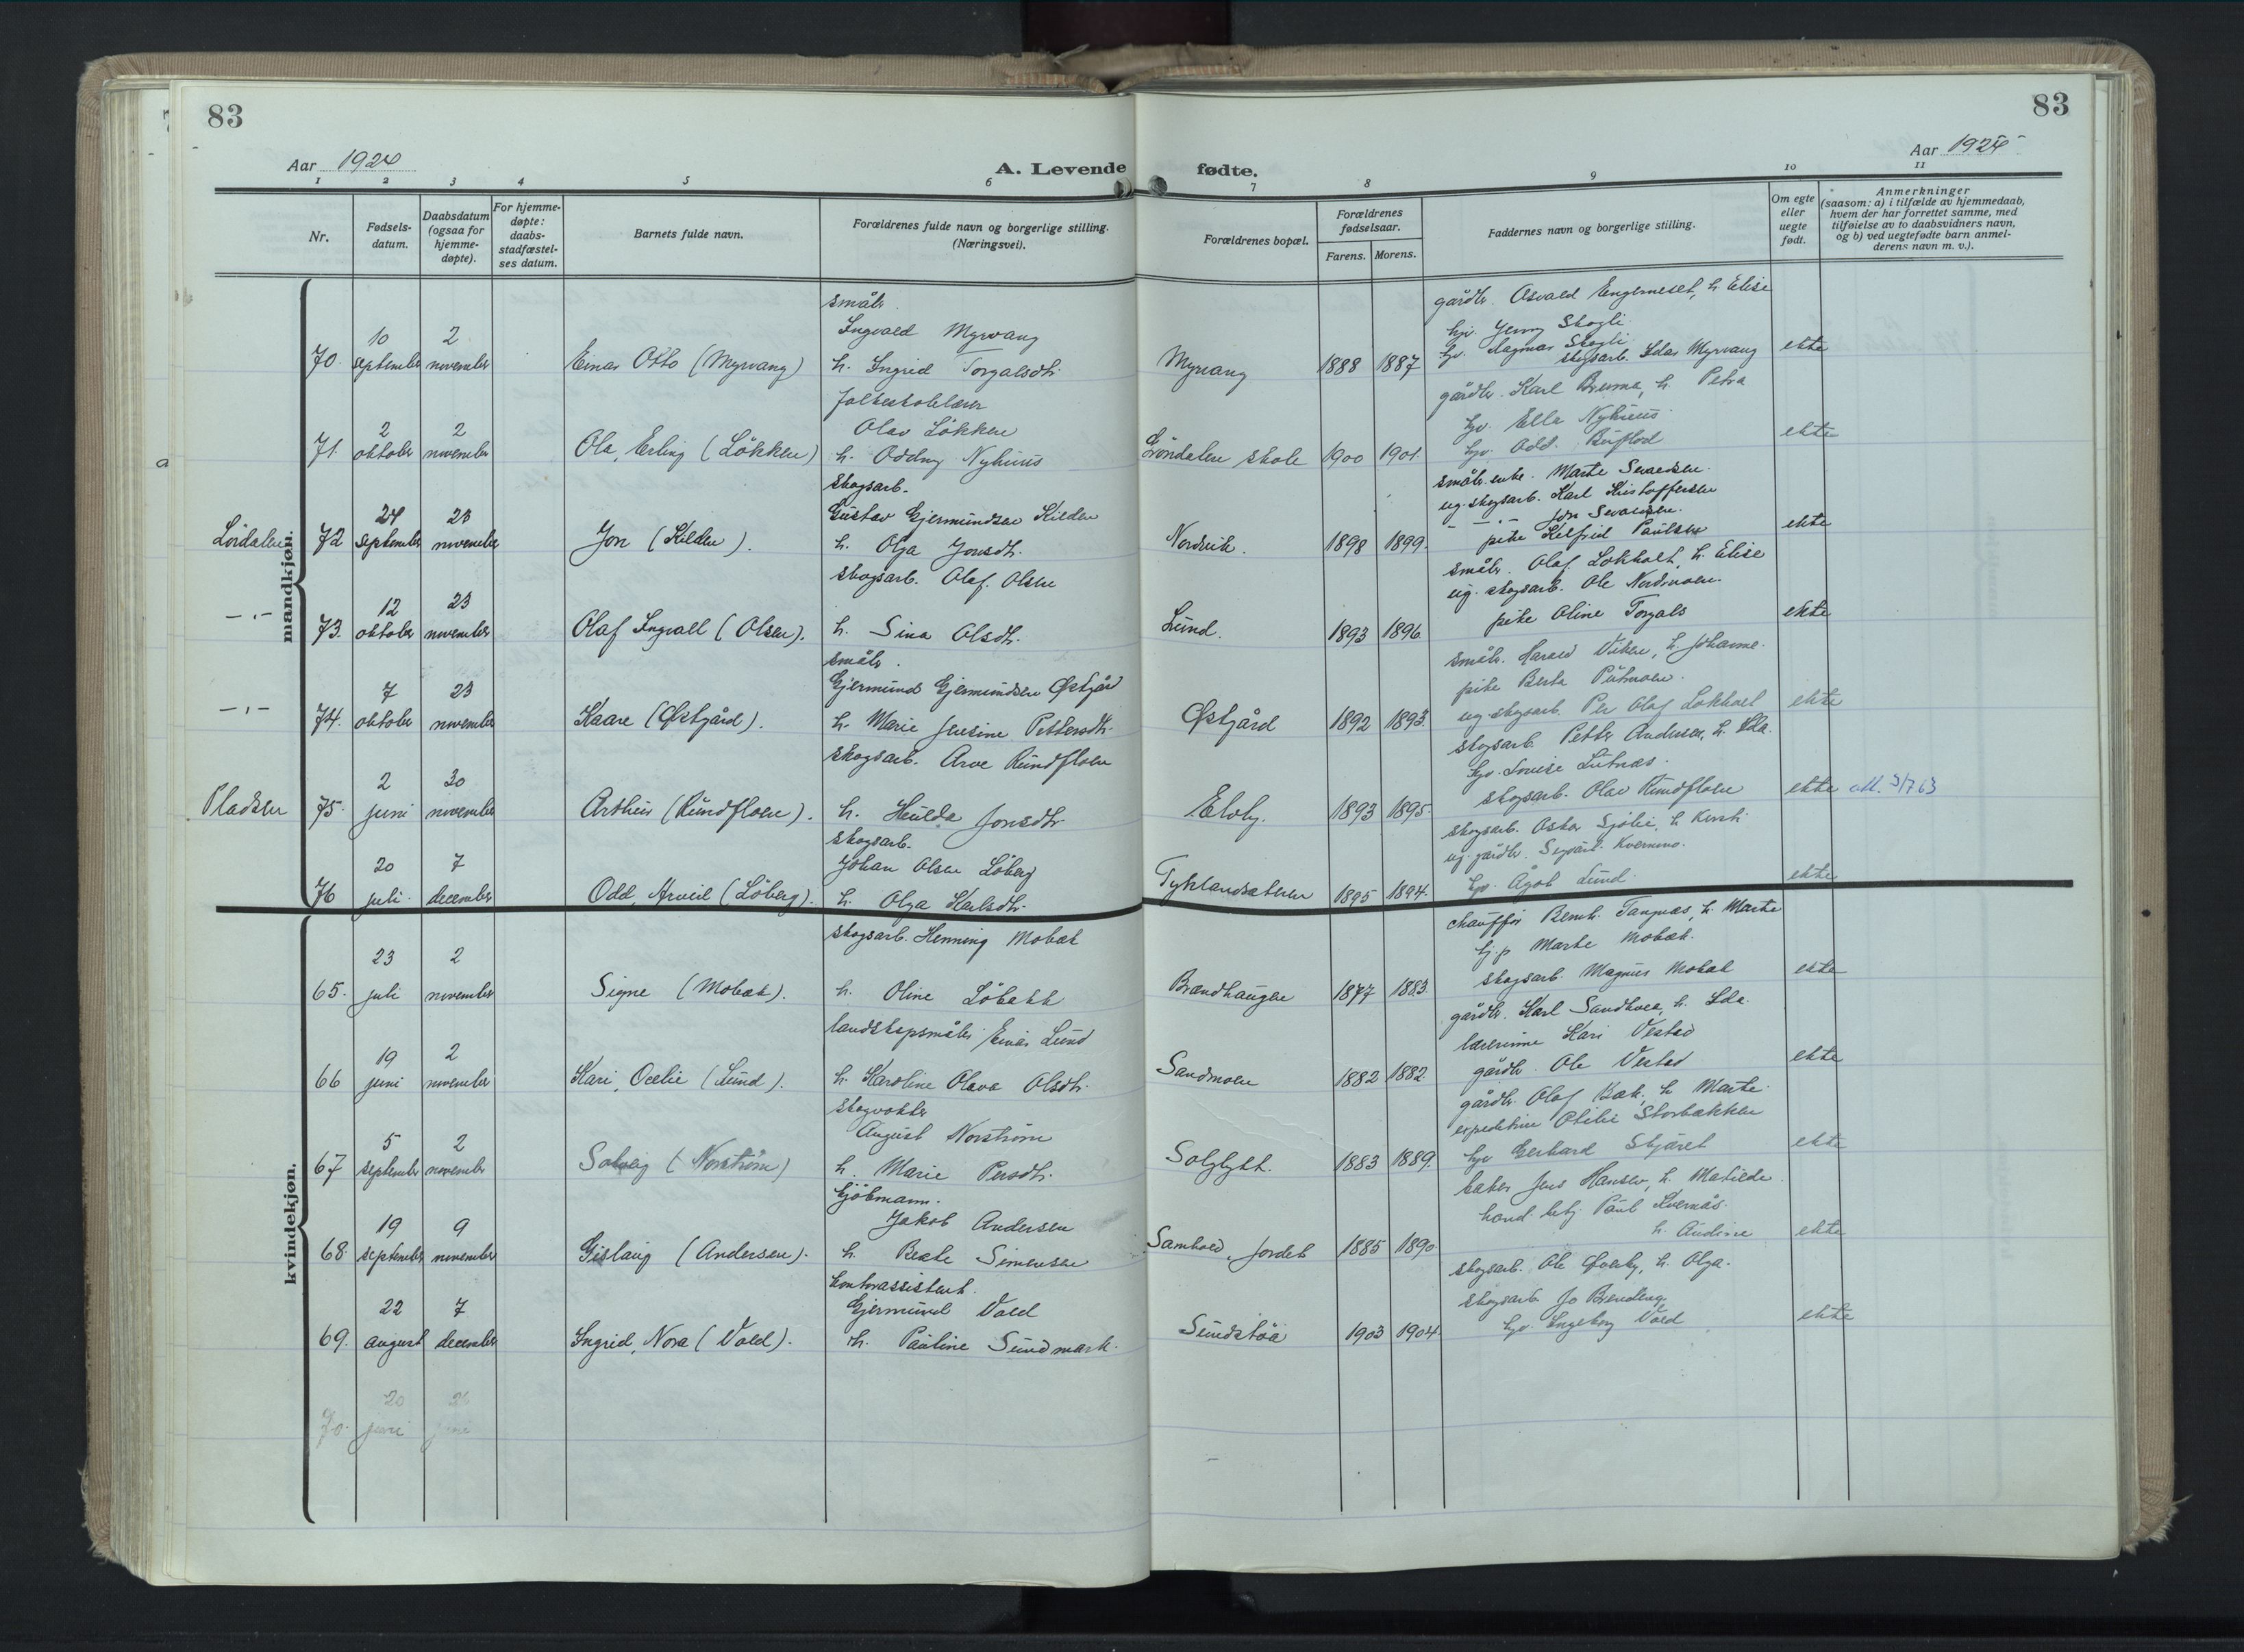 83
83
Aar 1924
A. Levende
fødte.
Aar 1924
1 2 3 4 5 6 7 8 9 10 11
Nr.
Fødsels-
datum.
Daabsdatum
(ogsaa for
hjemme-
døpte).
For hjemme-
døpte:
daabs-
stadfæstel-
ses datum.
Barnets fulde navn.
Forældrenes fulde navn og borgerlige stilling.
(Næringsvei).
Forældrenes bopæl.
Forældrenes
fødselsaar.
Farens. Morens.
Faddernes navn og borgerlige stilling.
Om egte
eller
uegte
født.
Anmerkninger
(saasom: a) i tilfælde av hjemmedaab,
hvem der har forrettet samme, med
tilføielse av to daabsvidners navn,
og b) ved uegtefødte barn anmel-
derens navn m. v.).
mandkjøn.
70. 10 september 2 november
Einar Otto (Myrvang)
småbr.
Ingvald Myrvang
h. Ingrid Torgalsdtr.
Myrvang 1888 1887
gårdbr. Osvald Engerneset, h. Elise
hjv. Jenny Skogli
hjv. Dagmar Skogli
skogsarb. Idar Myrvang
ekte
71. 2 oktober 2 november
Ola, Erling (Løkken)
folkeskolelærer
Olav Løkken
h. Oddny Nyhuus
Grøndalen skole 1900 1901.
gårdbr. Karl Brenna, h. Petra
hjv. Ella Nyhuus
hjv. Odd Buflød
ekte
Lørdalen
72 24 september 23 november
Jon (Kilden).
skogsarb.
Gustav Gjermundsen Kilden
h. Olga Jonsdtr.
Nordvik. 1898 1899.
småbr. enke. Marte Svendsen.
ug. skogsarb. Karl Kristoffersen
- " - Jon Svendsen.
pike Helfrid Paulsen
ekte
- " -
73. 12 oktober 23 november
Olaf Ingvall (Olsen).
skogsarb. Olaf Olsen
h. Sina Olsdtr.
Lund. 1893 1896.
småbr. Olaf Lokholt, h. Elise
ug. skogsarb. Ole Nordmoen.
pike Oline Torgals
ekte
- " -
74. 7 oktober 23 november
Kaare (Østgård).
småbr.
Gjermund Gjermundsen Østgård
h. Marie Jensine Pettersdtr.
Østgård 1892 1893.
småbr. Harald Viken, h. Johanne.
pike Berta Putmoen.
ug. skogsarb. Per Olaf Lokholt
ekte
Pladsen
75. 2 juni 30 november
Arthur (Rundfloen).
skogsarb. Arve Rundfloen
h. Hulda Jonsdtr.
Elvly. 1893 1895.
skogsarb. Petter Andersen, h. Ida.
hjv. Louise Lutnæs.
skogsarb. Olav Rundfloen
ekte att. 3/7 63
76 20 juli. 7 december
Odd, Arvid (Løberg).
skogsarb.
Johan Olsen Løberg
h. Olga Karlsdtr.
1895 1894.
skogsarb. Oskar Sjøli, h. Kersti
ug. gårdbr. Sigvart Kvernmo.
hjv. Ågot Lund.
ekte
kvindekjøn.
65. 23 juli 2 november
Signe (Mobæk).
skogsarb. Henning Mobæk
h. Oline Løbekk
Brændhaugen 1877 1883
chauffør Bernh. Tangnæs, h. Marte
hj.p Marte Mobæk.
skogsarb. Magnus Mobæk
ekte
66 19 juni 2 november
Kari, Ocelie (Lund).
landskapsmåler Einar Lund
h. Karoline Olava Olsdtr.
Sandmoen 1882 1882.
gårdbr. Karl Sandhoea, h. Ida.
lærerinne Kari Vestad
gårdbr. Ole Vestad
ekte
67 5 september 2 november
Solveig (Norstrøm)
skogvokter
August Norstrøm
h. Marie Persdtr.
Solglytt. 1883 1889.
gårdbr. Olaf Bæk, h. Marte.
expeditrise Otilie Storbækken
hjv. Gerhard Skjæret
ekte
68. 19 september 9 november
Gislaug (Andersen).
Kjøbmann.
Jakob Andersen
h. Beate Simensen
Samhold, Jordet 1885 1890
baker Jens Hansen, h. Matilde
hand.betj. Paul Kvernås.
h. Audine
ekte
69. 22 august 7 december
Ingrid, Nora (Vold).
kontorassistent.
Gjermund Vold
h. Pauline Sundmark.
Sundstøa 1903 1904
skogsarb. Ole Øverby, h. Olga.
skogsarb. Jo Brenden
hjv. Ingeborg Vold
ekte
70. 20 juni juni